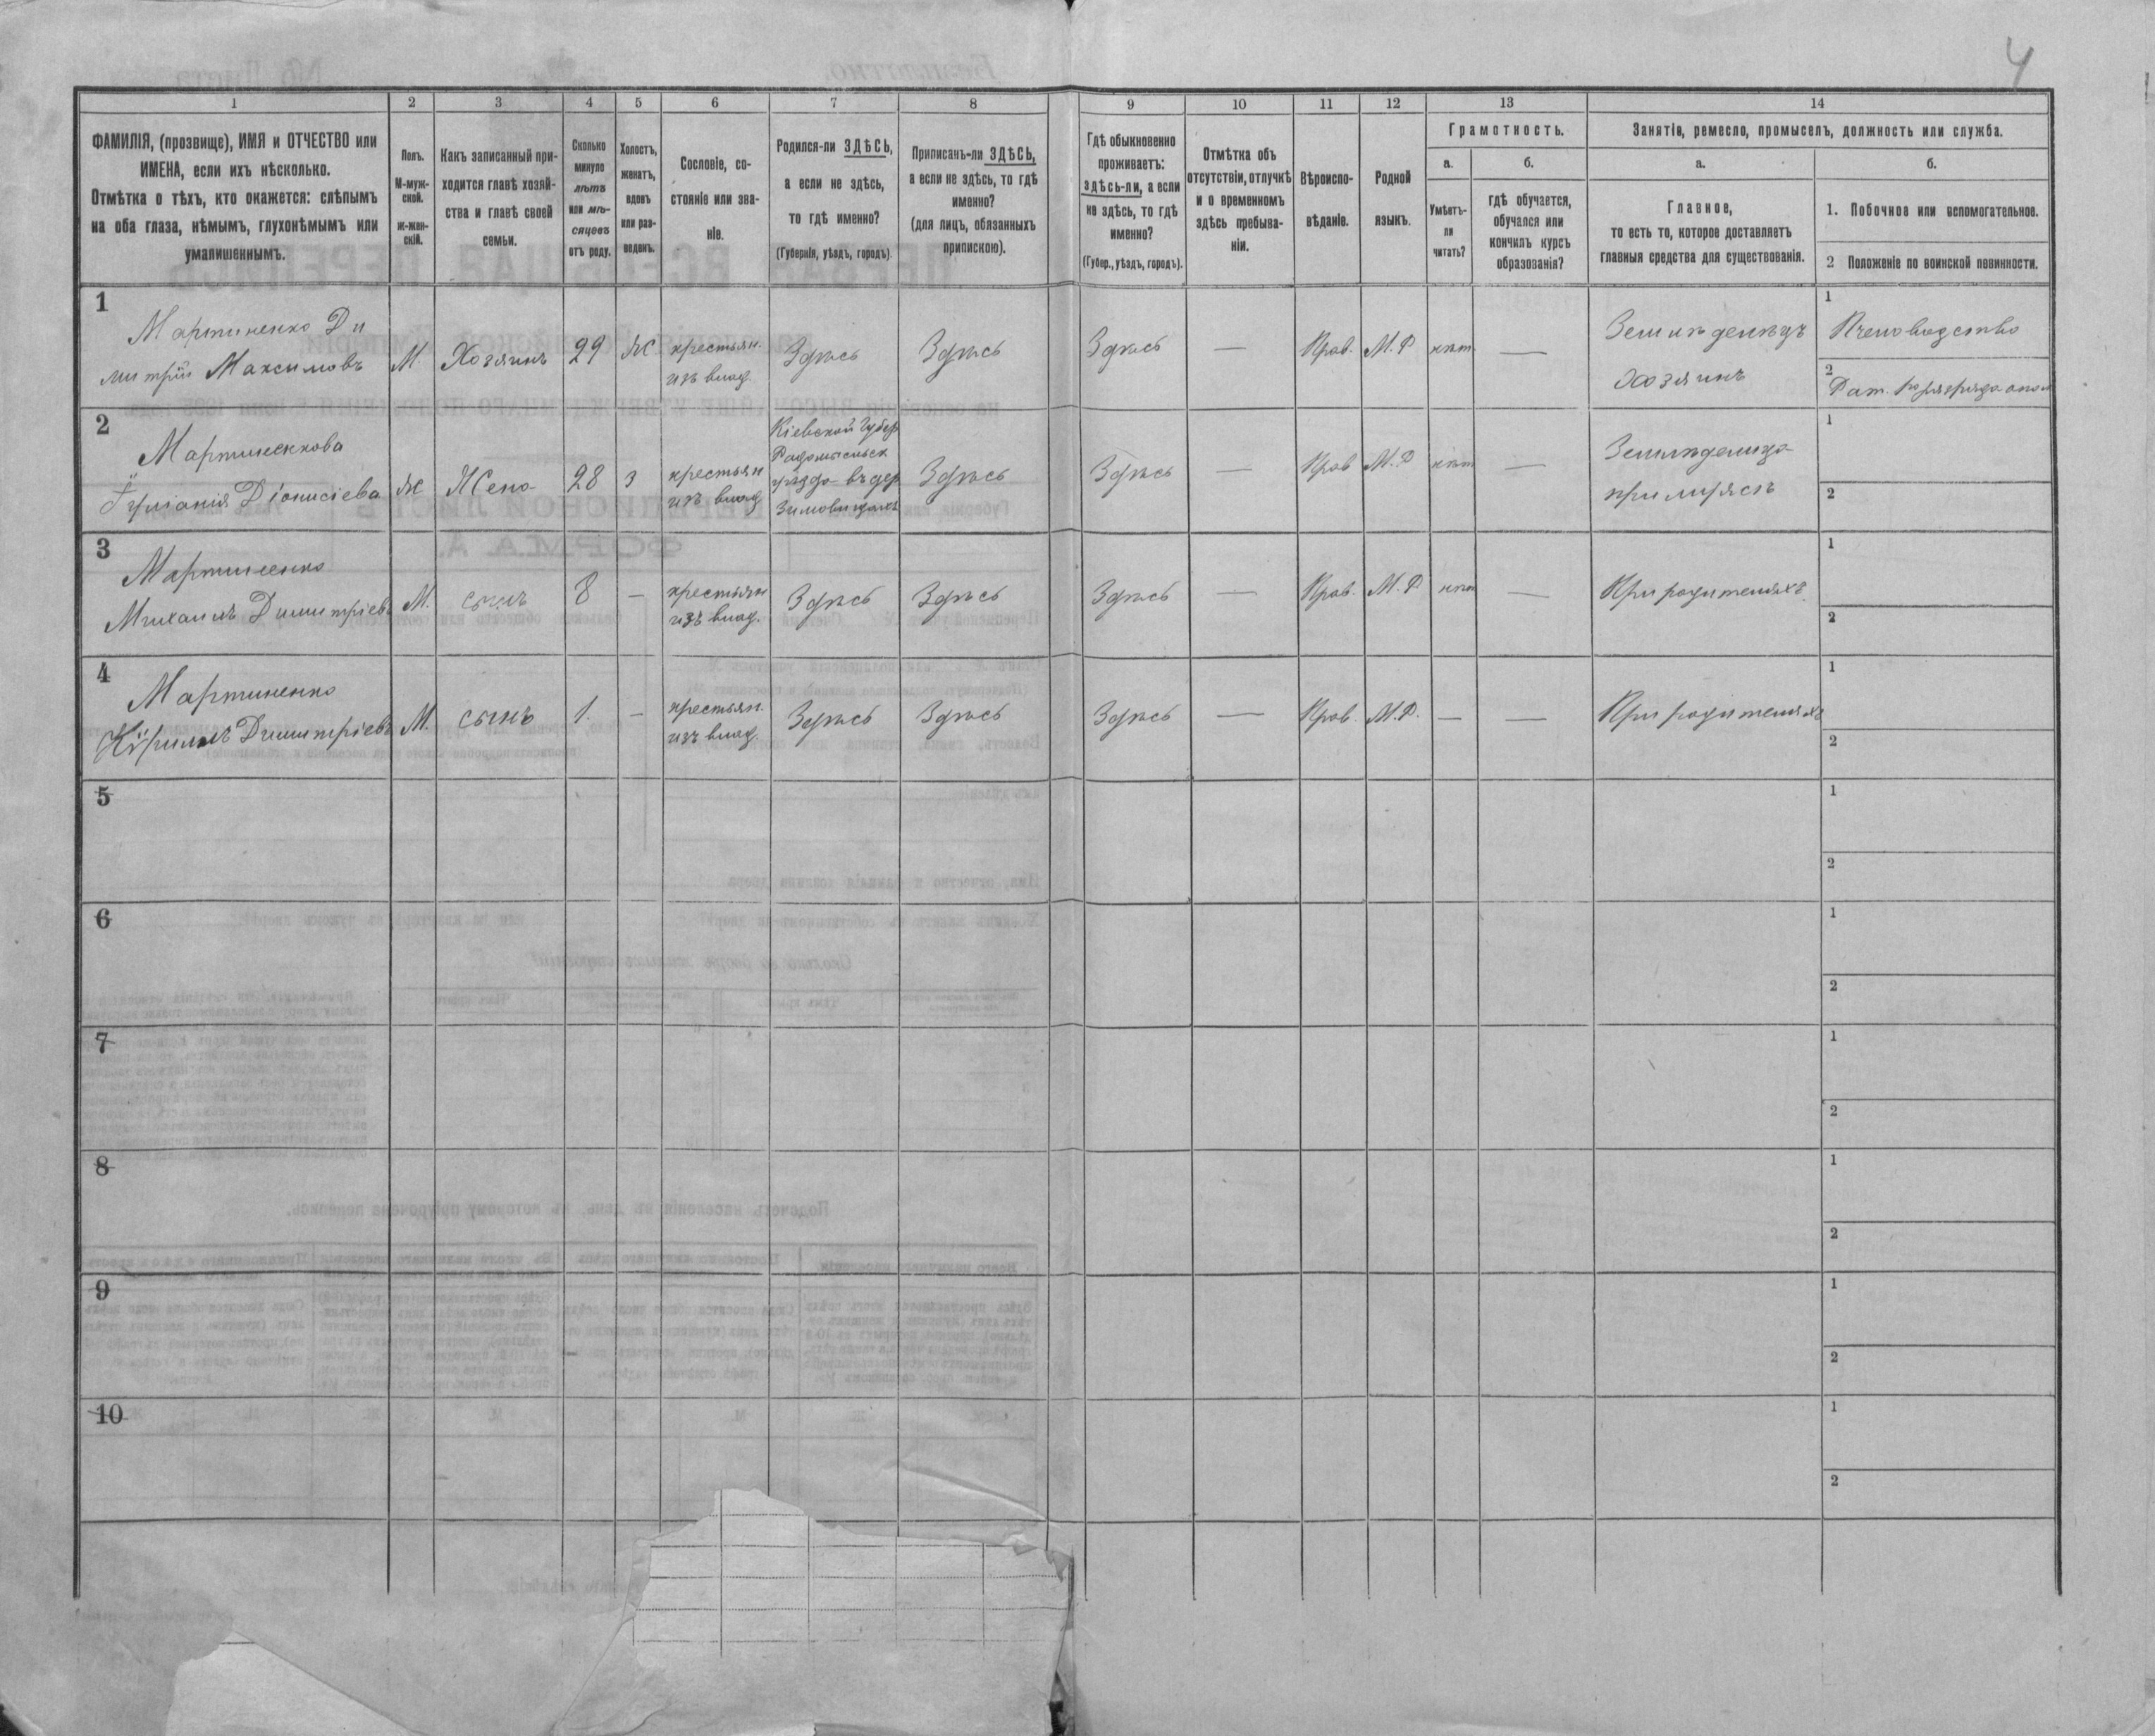 4
1 2 3 4 5 6 7 8 9 10 11 12 13 14
ФАМИЛІЯ, (прозвище), ИМЯ и ОТЧЕСТВО или
ИМЕНА, если ихъ нѣсколько.
Отмѣтка о тѣхъ, кто окажется: слѣпымъ
на оба глаза, нѣмымъ, глухонѣмымъ или
умалишеннымъ.
Полъ.
М-муж-
ской.
ж-жен-
скій.
Какъ записанный при-
ходится главѣ хозяй-
ства и главѣ своей
семьи.
Сколько
минуло
лѣтъ
или мѣ-
сяцевъ
отъ роду.
Холостъ,
женатъ,
вдовъ
или раз-
веденъ.
Сословіе, со-
стояніе или зва-
ніе.
Родился-ли ЗДѢСЬ,
а если не здѣсь,
то гдѣ именно?
(Губернія, уѣздъ, городъ).
Приписанъ-ли ЗДѢСЬ,
а если не здѣсь, то гдѣ
именно?
(для лицъ, обязанныхъ
припискою).
Гдѣ обыкновенно
проживаетъ:
здѣсь-ли, а если
не здѣсь, то гдѣ
именно?
(Губер., уѣздъ, городъ).
Отмѣтка объ
отсутствіи, отлучкѣ
и о временномъ
здѣсь пребыва-
ніи.
Вѣроиспо-
вѣданіе.
Родной
языкъ.
Грамотность.
а.
Умѣетъ-
ли
читать?
б.
гдѣ обучается,
обучался или
кончилъ курсъ
образованія?
Занятіе, ремесло, промыселъ, должность или служба.
а.
Главное,
то есть то, которое доставляетъ
главныя средства для существованія.
б.
1. Побочное или вспомогательное.
2 Положеніе по воинской повинности.
1
Мартиненко Ди
митрій Максимовъ
М.
Хозяинъ
29
Ж
крестьян.
изъ влад.
Здѣсь
Здѣсь
Здѣсь
—
Прав.
М.Р
нѣт
—
Земледѣлецъ
хозяинъ
1
Пчеловодство
2
Рат.
2
Мартиненкова
Іуліанія Діонисіева
Ж
Жена
28
З
крестьян
изъ влад
Кіевской Губер
Радомысльск
уѣзда въ дер
Здѣсь
Здѣсь
—
Прав
М.Р
нѣт
—
при мужѣ
1
2
3
Мартиненко
Михаилъ Димитріевъ
М.
сынъ
8
—
крестьян
изъ влад.
Здѣсь
Здѣсь
Здѣсь
—
Прав.
М.Р
нѣт
—
При родителяхъ
1
2
4
Мартиненко
Кірилъ Димитріевъ
М.
сынъ
1.
—
крестьян.
изъ влад.
Здѣсь
Здѣсь
Здѣсь
—
Прав.
М.Р.
—
—
При родителяхъ
1
2
5
1
2
6
1
2
7
1
2
8
1
2
9
1
2
10
1
2